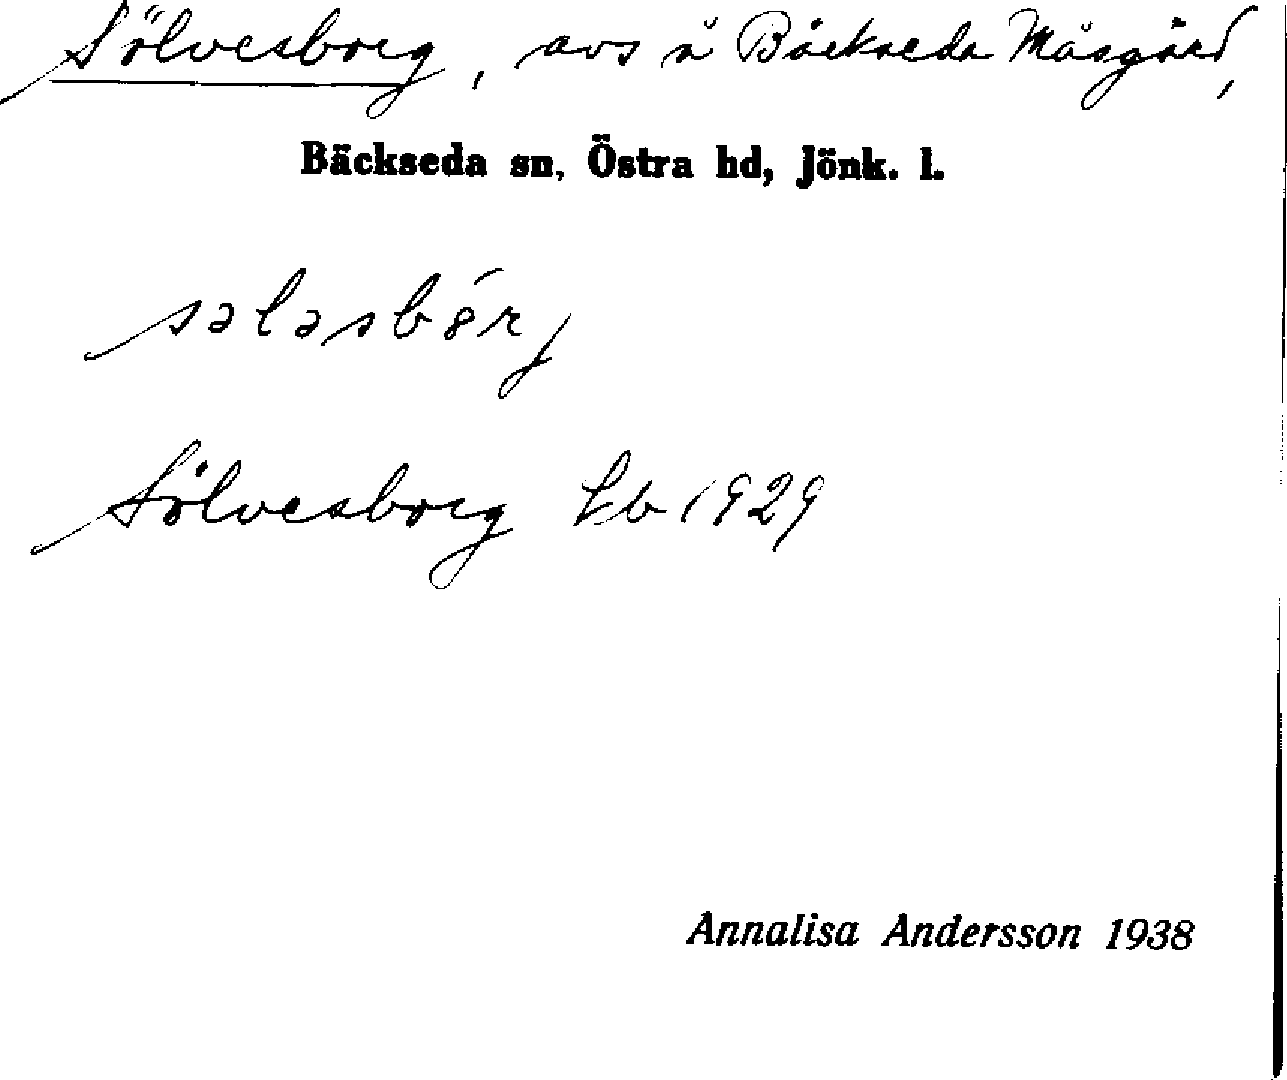 Sölvesborg, avs å Bäckseda Måsgård,
Bäckseda sn, Östra hd, Jönk. l.
sələsbórj
Sölvesborg Lb 1929
Annalisa Andersson 1938